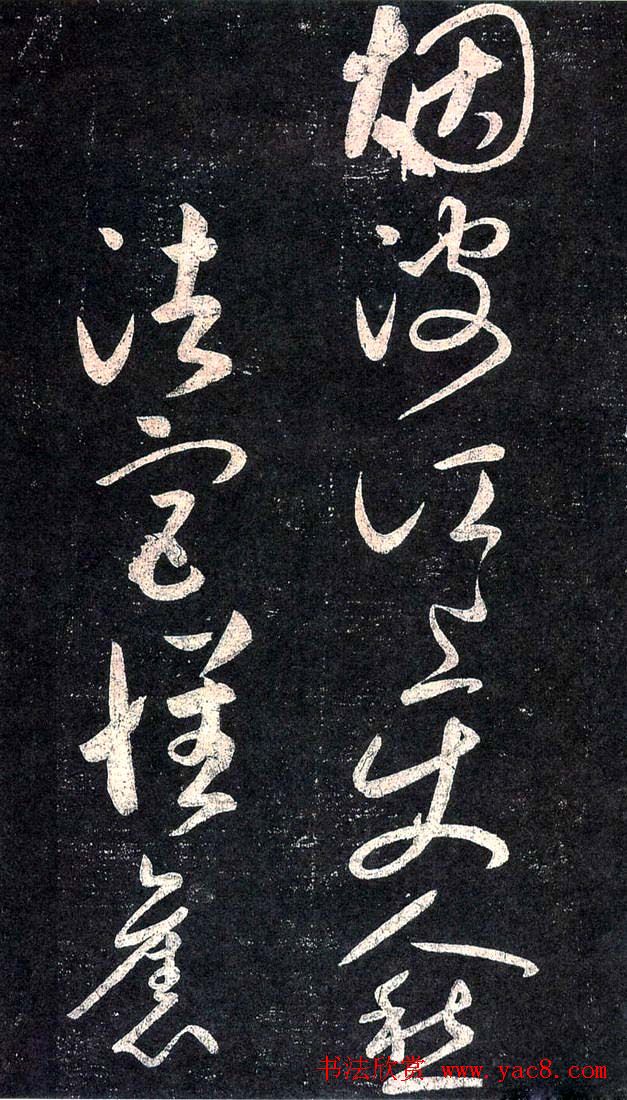 烟波江上使人愁
法
书法欣赏 www.yac8.com